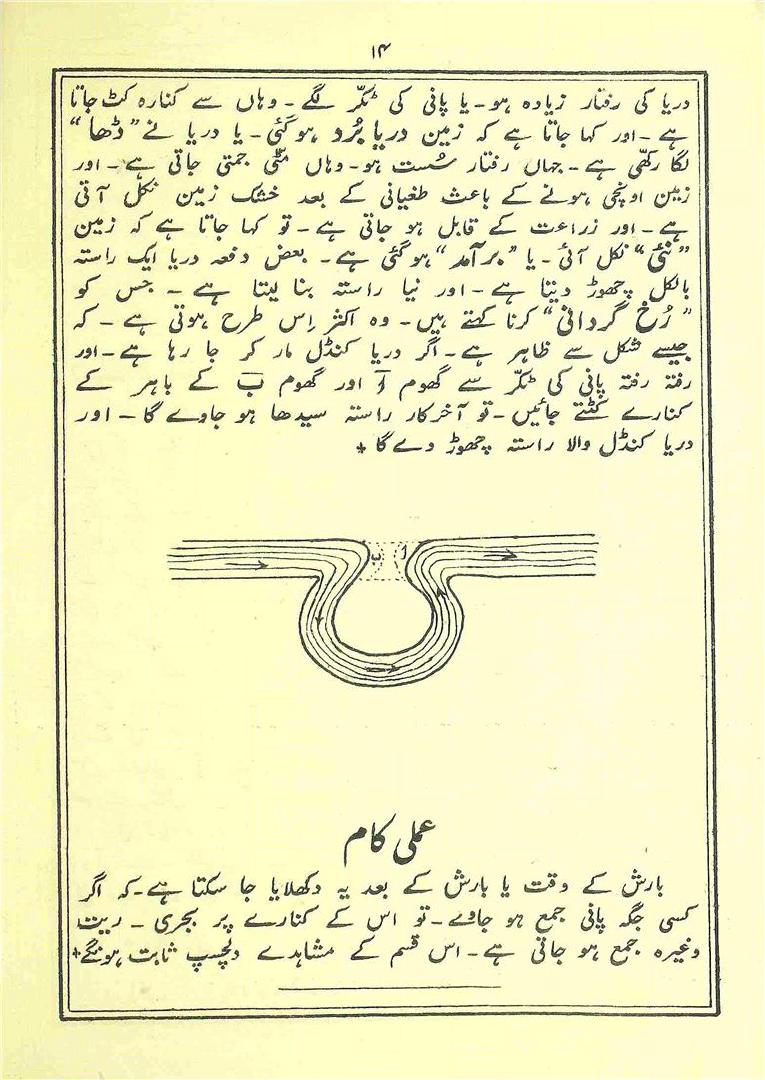 ۱۴
دریا کی رفتار زیادہ ہو۔ یا پانی کی ٹکّر لگے۔ وہاں سے کنارہ کٹ جاتا
ہے۔ اور کہا جاتا ہے کہ زمین دریا بُرد ہوگئی۔ یا دریا نے ”ڈھا“
لگا رکھّی ہے۔ جہاں رفتار سُست ہو۔ وہاں مٹّی جمتی جاتی ہے۔ اور
زمین اونچی ہونے کے باعث طغیانی کے بعد خشک زمین نکل آتی
ہے۔ اور زراعت کے قابل ہو جاتی ہے۔ تو کہا جاتا ہے کہ زمین
”نئی“ نکل آئی۔ یا ”برآمد“ ہوگئی ہے۔ بعض دفعہ دریا ایک راستہ
بالکل چھوڑ دیتا ہے۔ اور نیا راستہ بنا لیتا ہے۔ جس کو
”رُخ گردانی“ کرنا کہتے ہیں۔ وہ اکثر اِس طرح ہوتی ہے۔ کہ
جیسے شکل سے ظاہر ہے۔ اگر دریا کنڈل مار کر جا رہا ہے۔ اور
رفتہ رفتہ پانی کی ٹکّر سے گھوم اَ اور گھوم بَ کے باہر کے
کنارے کٹتے جائیں۔ تو آخرکار راستہ سیدھا ہو جاوے گا۔ اور
دریا کنڈل والا راستہ چھوڑ دے گا *
ب ا
عملی کام
بارش کے وقت یا بارش کے بعد یہ دکھلایا جا سکتا ہے۔ کہ اگر
کسی جگہ پانی جمع ہو جاوے۔ تو اس کے کنارے پر بجری۔ ریت
وغیرہ جمع ہو جاتی ہے۔ اس قسم کے مشاہدے دلچسپ ثابت ہونگے *